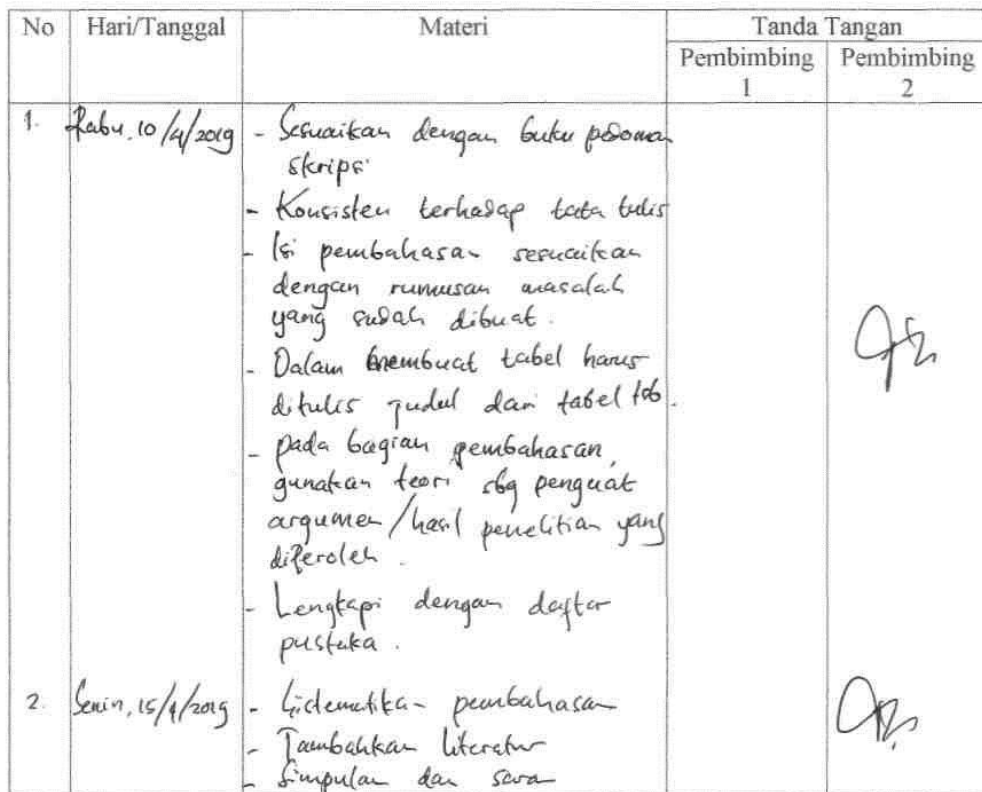 No Hari/Tanggal Materi Tanda Tangan
Pembimbing 1 Pembimbing 2
1. Rabu, 10/4/2019 - Sesuaikan dengan buku pedoman
skripsi
- Konsisten terhadap tata tulis
- Isi pembahasan sesuaikan
dengan rumusan masalah
yang sudah dibuat.
- Dalam membuat tabel harus
ditulis judul dari tabel tsb.
- pada bagian pembahasan,
gunakan teori sbg penguat
argumen/hasil penelitian yang
diperoleh.
- Lengkapi dengan daftar
pustaka.
2. Senin, 15/4/2019 - Sistematika pembahasan
- Tambahkan literatur
- Simpulan dan saran